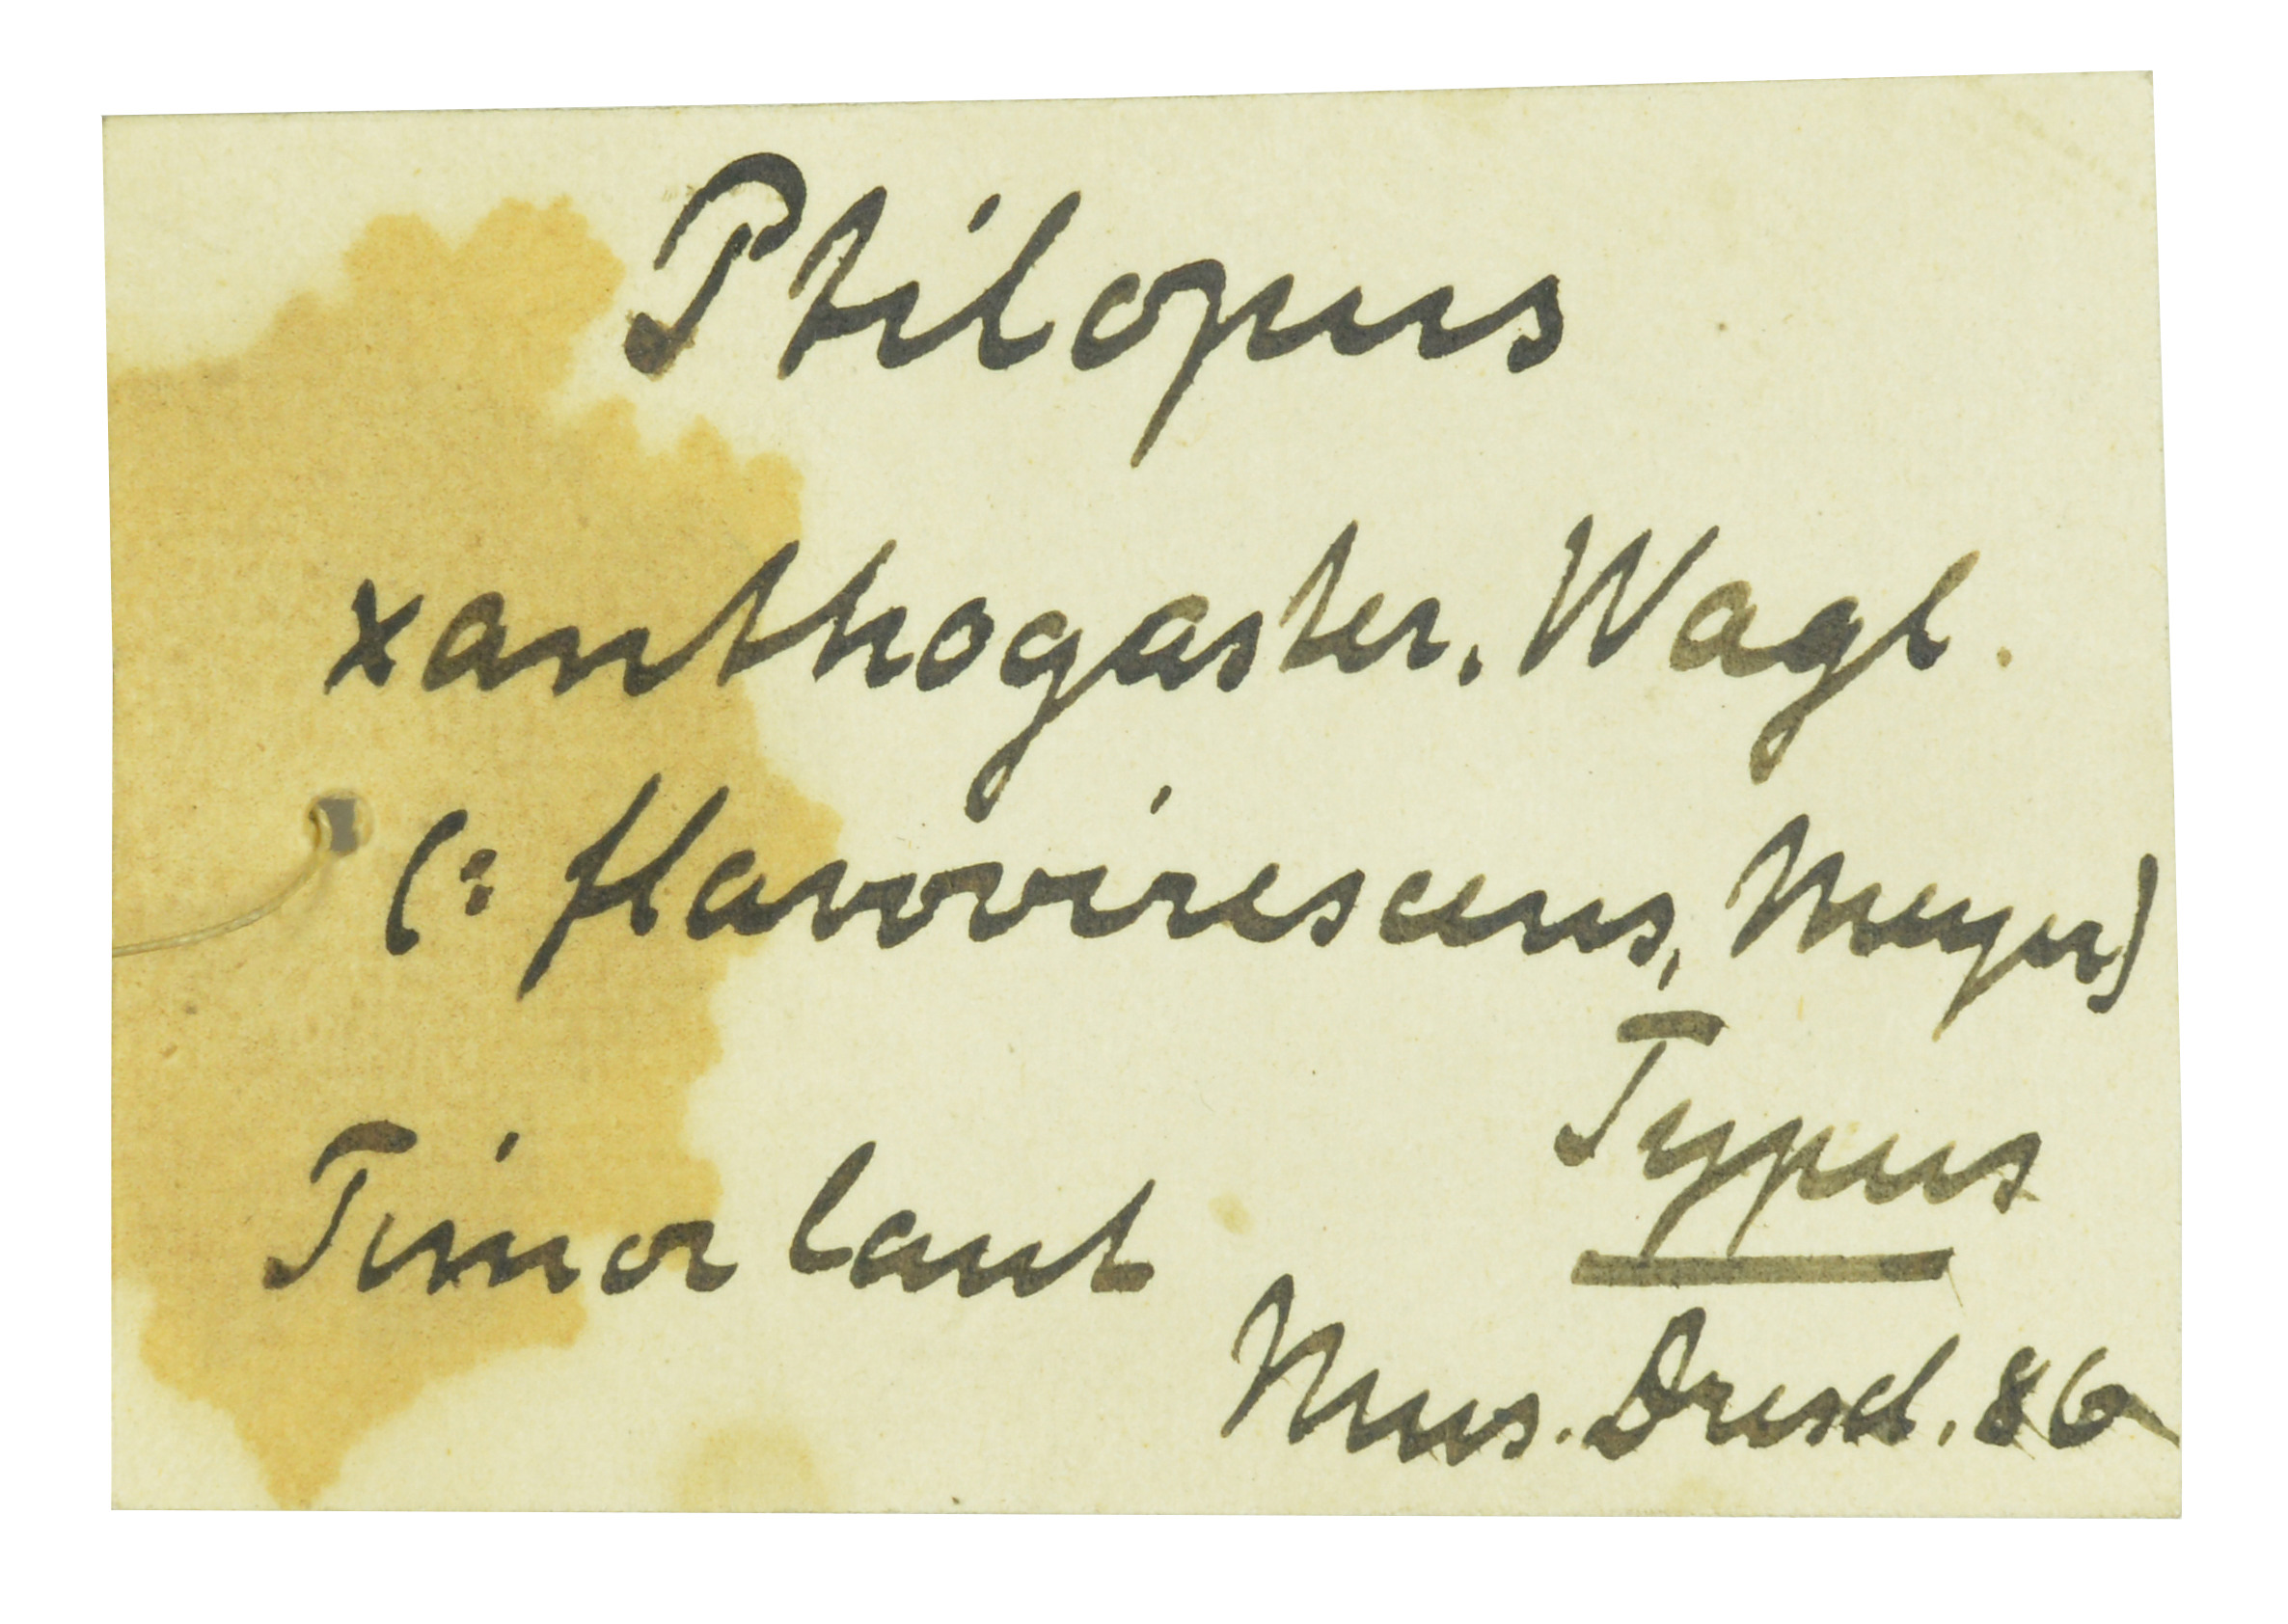 Ptilopus
xanthogaster. Wagl.
(: flavovirescens, Meyer)
Typus
Timor laut
Mus. Dresd. 86